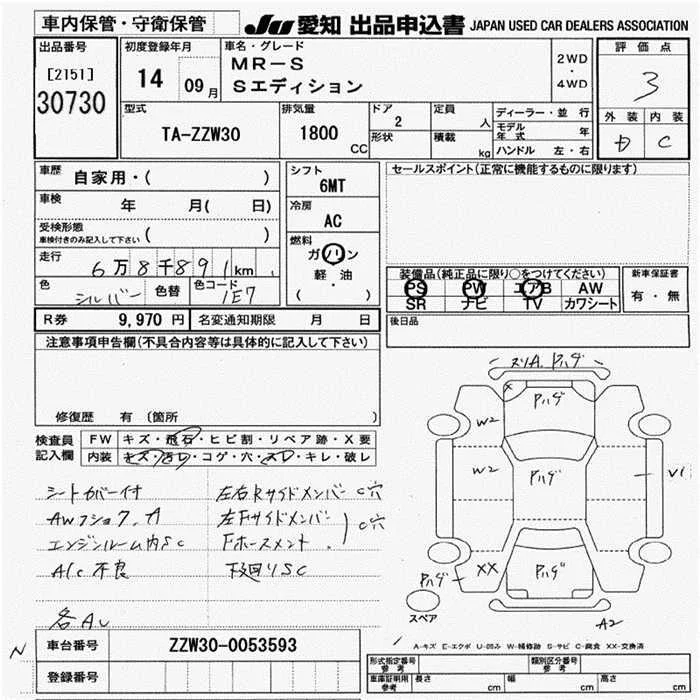 車内保管・守衛保管
JU 愛知 出品申込書 JAPAN USED CAR DEALERS ASSOCIATION
出品番号
[2151]
30730
初度登録年月
14 09月
車名・グレード
MR-S
Sエディション
2WD
・
4WD
評価点
3
型式
TA-ZZW30
排気量
1800
CC
ドア
2
形状
定員
人
積載
kg
ディーラー・並行
モデル年式 年
ハンドル 左・右
外装 内装
C
車歴
自家用・( )
車検 年 月( 日)
受検形態
車検付きのみ記入して下さい ( )
走行 6万8千891km
色 シルバー 色替 色コード 1E7
シフト
6MT
冷房
AC
燃料
ガソリン
・
軽・油
( )
セールスポイント(正常に機能するものに限ります)
装備品(純正品に限り○をつけてください)
PS PW エアB AW
SR ナビ TV カワシート
新車保証書
有・無
後日品
R券 9,970円 名変通知期限 月 日
注意事項申告欄(不具合内容等は具体的に記入して下さい)
修復歴 有 〔箇所 〕
検査員記入欄
FW キズ・飛石・ヒビ割・リペア跡・X要
内装 キズ・汚レ・コゲ・穴・スレ・キレ・破レ
シートカバー付 左右Rサイドメンバー C穴
左Fサイドメンバー
C穴
エンジンルーム内SC
A/C不良 下廻りSC
各AU
スリA. Pハゲ
Pハゲ
W2
W2
Pハゲ
V1
Pハゲ
XX
Pハゲ
スペア
A2
A-キズ E-エクボ U-凹み W-補修跡 S-サビ C-腐食 XX-交換済
N
車台番号 ZZW30-0053593
登録番号
形式指定番号 参考
類別区分番号 参考
車庫証明用 参考 長さ cm 幅 cm 高さ cm